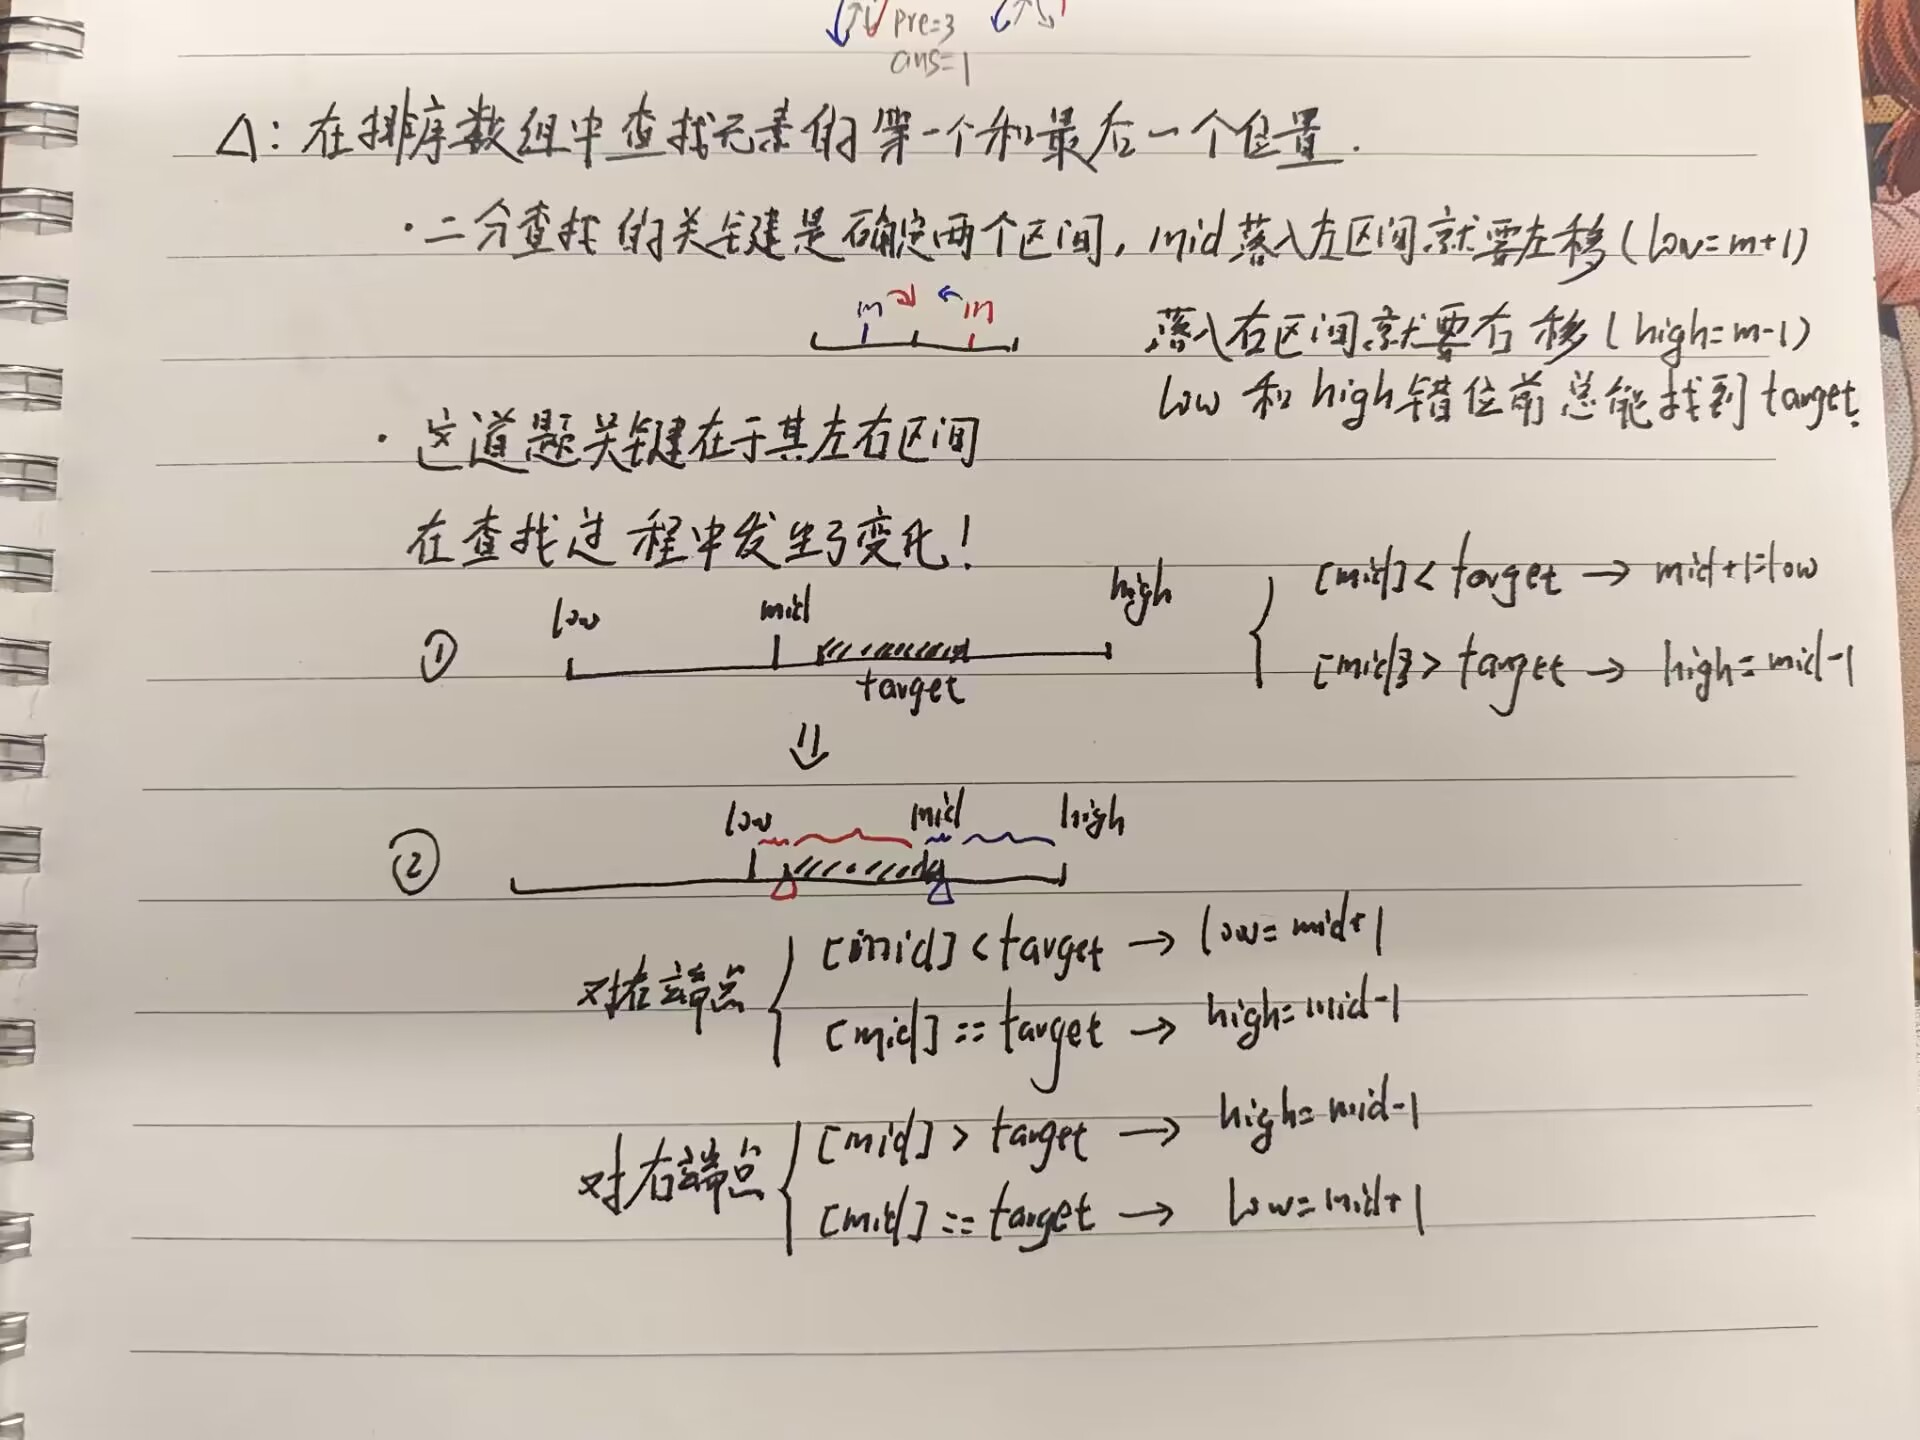 pre=3
ans=1
△：在排序数组中查找元素的第一个和最后一个位置.
·二分查找的关键是确定两个区间，mid落入左区间就要左移(low=m+1)
m m
落入右区间就要右移(high=m-1)
low和high错位前总能找到target.
·这道题关键在于其左右区间
在查找过程中发生了变化!
① low mid high
target
[mid]< target → mid+1=low
[mid]> target → high=mid-1
⇓
② low mid high
对右端点 [mid]<target → low=mid+1
[mid]==target → high=mid-1
对右端点 [mid]> target → high=mid-1
[mid]==target → low=mid+1